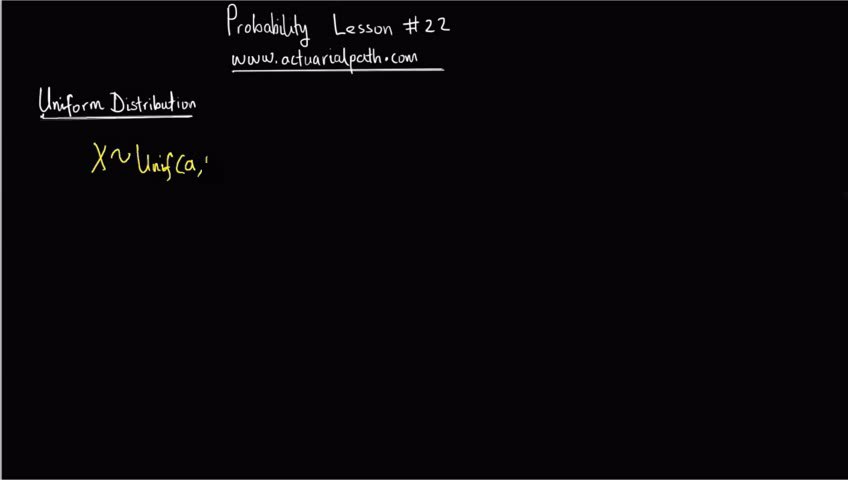 Probability Lesson #22
www.actuarialpath.com
Uniform Distribution
X~Unif(a,